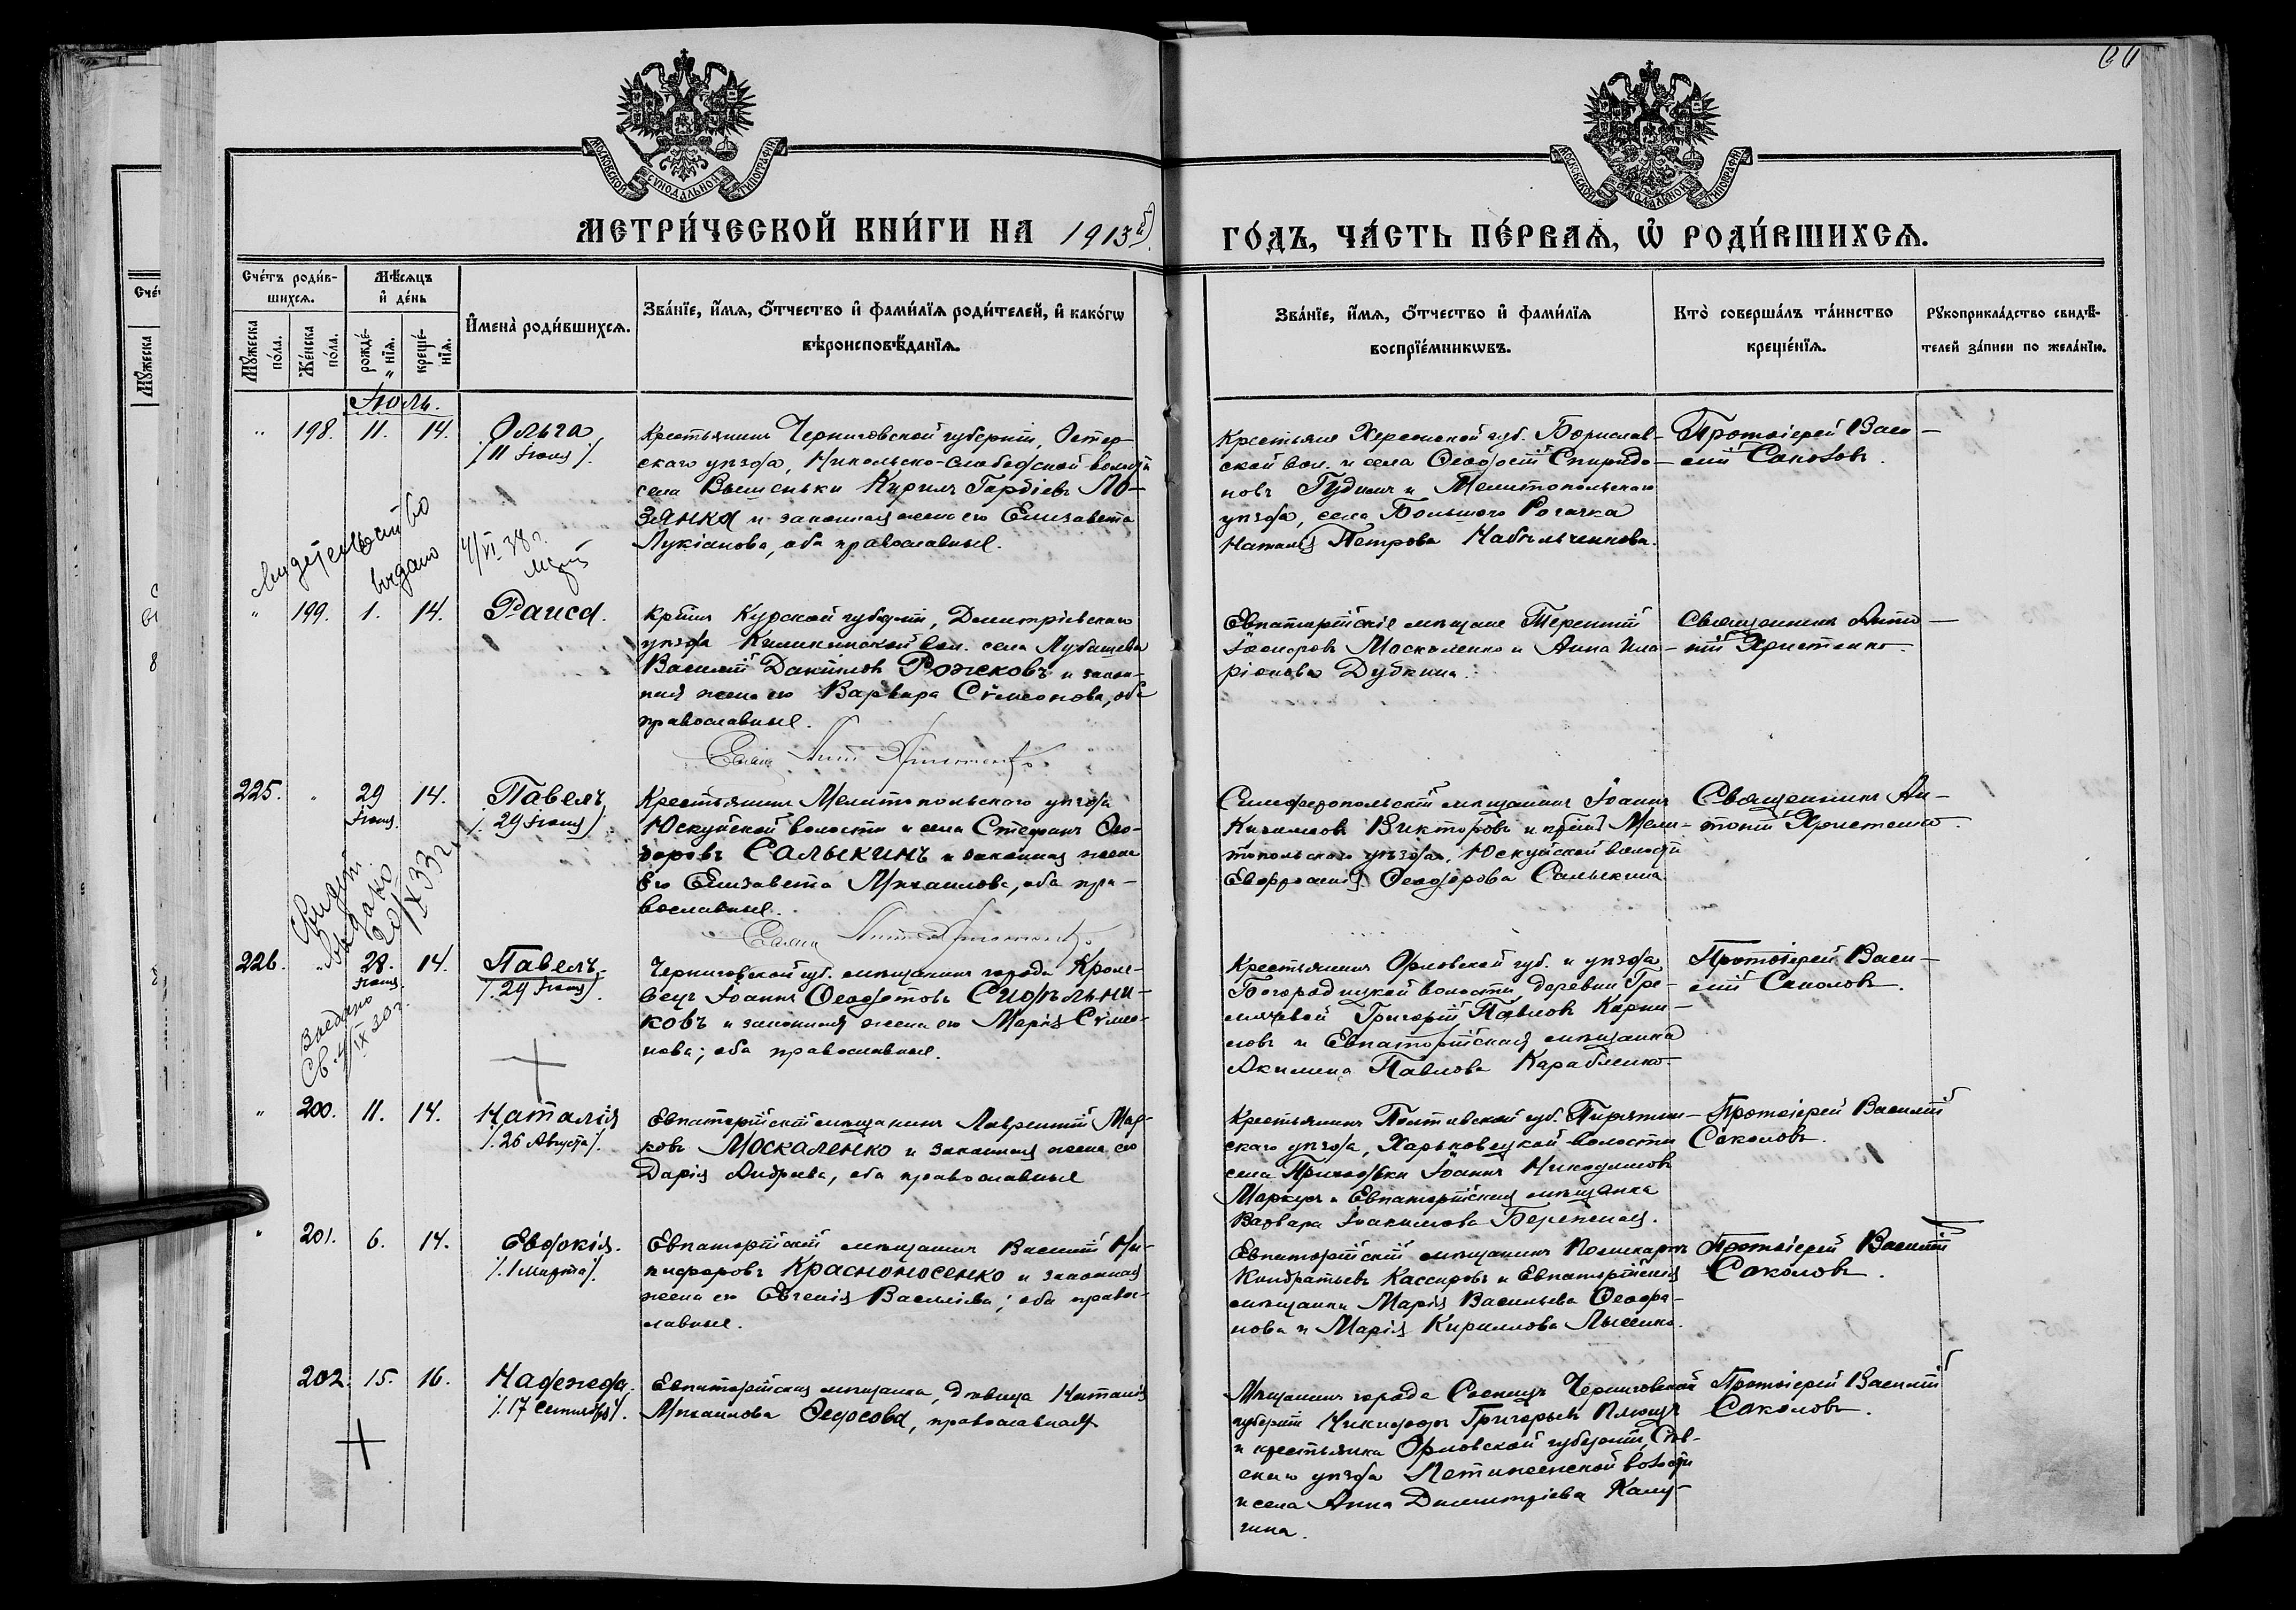 60
МОСКОВСКОЙ СѴНОДАЛЬНОЙ ТИПОГРАФІИ
МОСКОВСКОЙ СѴНОДАЛЬНОЙ ТИПОГРАФІИ
МЕТРИ́ЧЕСКОЙ КНИ́ГИ НА 1913й
ГО́ДЪ, ЧА́СТЬ ПЕ́РВАѦ, Ѡ РОДИ́ВШИХСѦ.
Сче́тъ роди́в-
шихсѧ.
Мѣ́сѧцъ
и де́нь
Мꙋ́жеска
по́ла.
Же́нска
по́ла.
рожде́-
нїѧ.
креще́-
нїѧ.
И҆мена̀ роди́вшихсѧ.
Зва́нїе, и҆́мѧ, ѻ҆́тчество и҆ фами́лїѧ роди́телей, и҆ како́гѡ
вѣроисповѣ́данїѧ.
Зва́нїе, и҆́мѧ, ѻ҆́тчество и҆ фами́лїѧ
воспрїе́мникѡвъ.
Кто̀ соверша́лъ та́инство
креще́нїѧ.
Рꙋкоприкла́дство свидѣ́-
телей за́писи по жела́нїю.
Іюль.
" 198. 11. 14. Ольга
/11 Іюля/.
Крестьянинъ Черниговской губерніи, Остер-
скаго уѣзда, Никольско-Слободской волости
села Вышеньки Кирилъ Гордіевъ Ло-
зянко и законная жена его Елизавета
Лукіанова, оба православные.
Крестьяне Херсонской губ. Борислав-
ской вол. и села Ѳеодосій Спиридо-
новъ Гудимъ и Мелитопольскаго
уѣзда, села Большого Рогачка
Наталія Петрова Набильченкова.
Протоіерей Васи-
лій Соколовъ.
Свидетельство
выдано 4/VI 38 г.
" 199. 1. 14. Раиса.
Кр-нинъ Курской губерніи, Димитріевскаго
уѣзда вол. села Лубашева
Василій Даніиловъ Рожковъ и закон-
ная жена его Варвара Сѵмеонова, оба
православные.
Свящ. Антоній Христенко.
Евпаторійскіе мѣщане Терентій
Іосифовъ Москаленко и Анна Ила-
ріонова Дубкина.
Священникъ Анто-
ній Христенко.
225. " 29 14. Павелъ
Іюня.
/. 29 Іюня/
Крестьянинъ Мелитопольскаго уѣзда
Юскуйской волости и села Стефанъ Ѳео-
доровъ Салыкинъ и законная жена
его Елизавета Михаилова, оба пра-
вославные.
Свящ. Антоній Христенко.
Симферопольскій мѣщанинъ Іоаннъ
Викторовъ и кр-нка Мели-
топольскаго уѣзда, Юскуйской волости
Евфросинія Ѳеодорова Салыкина
Священникъ Ан-
тоній Христенко.
Свидет.
выдано
20/IX 33 г.
226. " 28. 14. Павелъ
Іюня.
/. 29 Іюня/.
Черниговской губ. мѣщанинъ города Кроле-
вецъ Іоаннъ Ѳеодотовъ Сидѣльни-
ковъ и законная жена его Марія Сѵмео-
нова; оба православные.
Крестьянинъ Орловской губ. и уѣзда
Богородицкой волости деревни Гре-
мячевой Григорій Павловъ Карпи-
ловъ и Евпаторійская мѣщанка
Акилина Павлова Карабленко
Протоіерей Васи-
лій Соколовъ.
Выдано
Св. 4/IX 30 г.
" 200. 11. 14. Наталія
/. 26 Августа/.
Евпаторійскій мѣщанинъ Лаврентій Мар-
ковъ Москаленко и законная жена его
Дарія Андреева, оба православные
Крестьянинъ Полтавской губ. Пирятин-
скаго уѣзда, Харьковецкой волости
села Приходьки Іоаннъ Никодимовъ
Маркусъ и Евпаторійская мѣщанка
Варвара Іоакимова Бережная.
Протоіерей Василій
Соколовъ.
" 201. 6. 14. Евдокія.
/. 1 марта/.
Евпаторійскій мѣщанинъ Василій Ни-
кифоровъ Красноносенко и законная
жена его Евгенія Васильева; оба право-
славные.
Евпаторійскій мѣщанинъ Поликарпъ
Кондратьевъ Кассировъ и Евпаторійскія
мѣщанки Марія Васильева Ѳеофа-
нова и Марія Кириллова Лысенко.
Протоіерей Василій
Соколовъ.
202. 15. 16. Надежда.
/. 17 Сентября/.
Евпаторійская мѣщанка, дѣвица Наталія
Михаилова Ѳедосова, православная
Мѣщанинъ города Сосницы Черниговской
губерніи Никифоръ Григорьевъ Плющъ
и крестьянка Орловской губерніи, Сѣв-
скаго уѣзда волости
и села Анна Димитріева Калу-
гина.
Протоіерей Василій
Соколовъ.